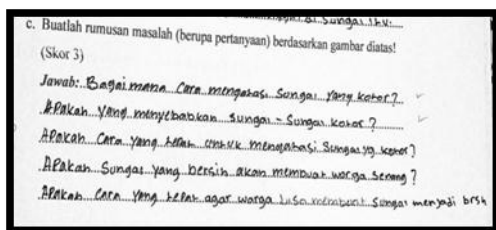 sungai itu.
c. Buatlah rumusan masalah (berupa pertanyaan) berdasarkan gambar diatas!
(Skor 3)
Jawab: Bagaimana cara mengatasi sungai yang kotor?
Apakah yang menyebabkan sungai - sungai kotor?
Apakah cara yang tepat untuk mengatasi sungai yg kotor?
Apakah sungai yang bersih akan membuat warga senang?
Apakah cara yang tepat agar warga bisa membuat sungai menjadi brsh